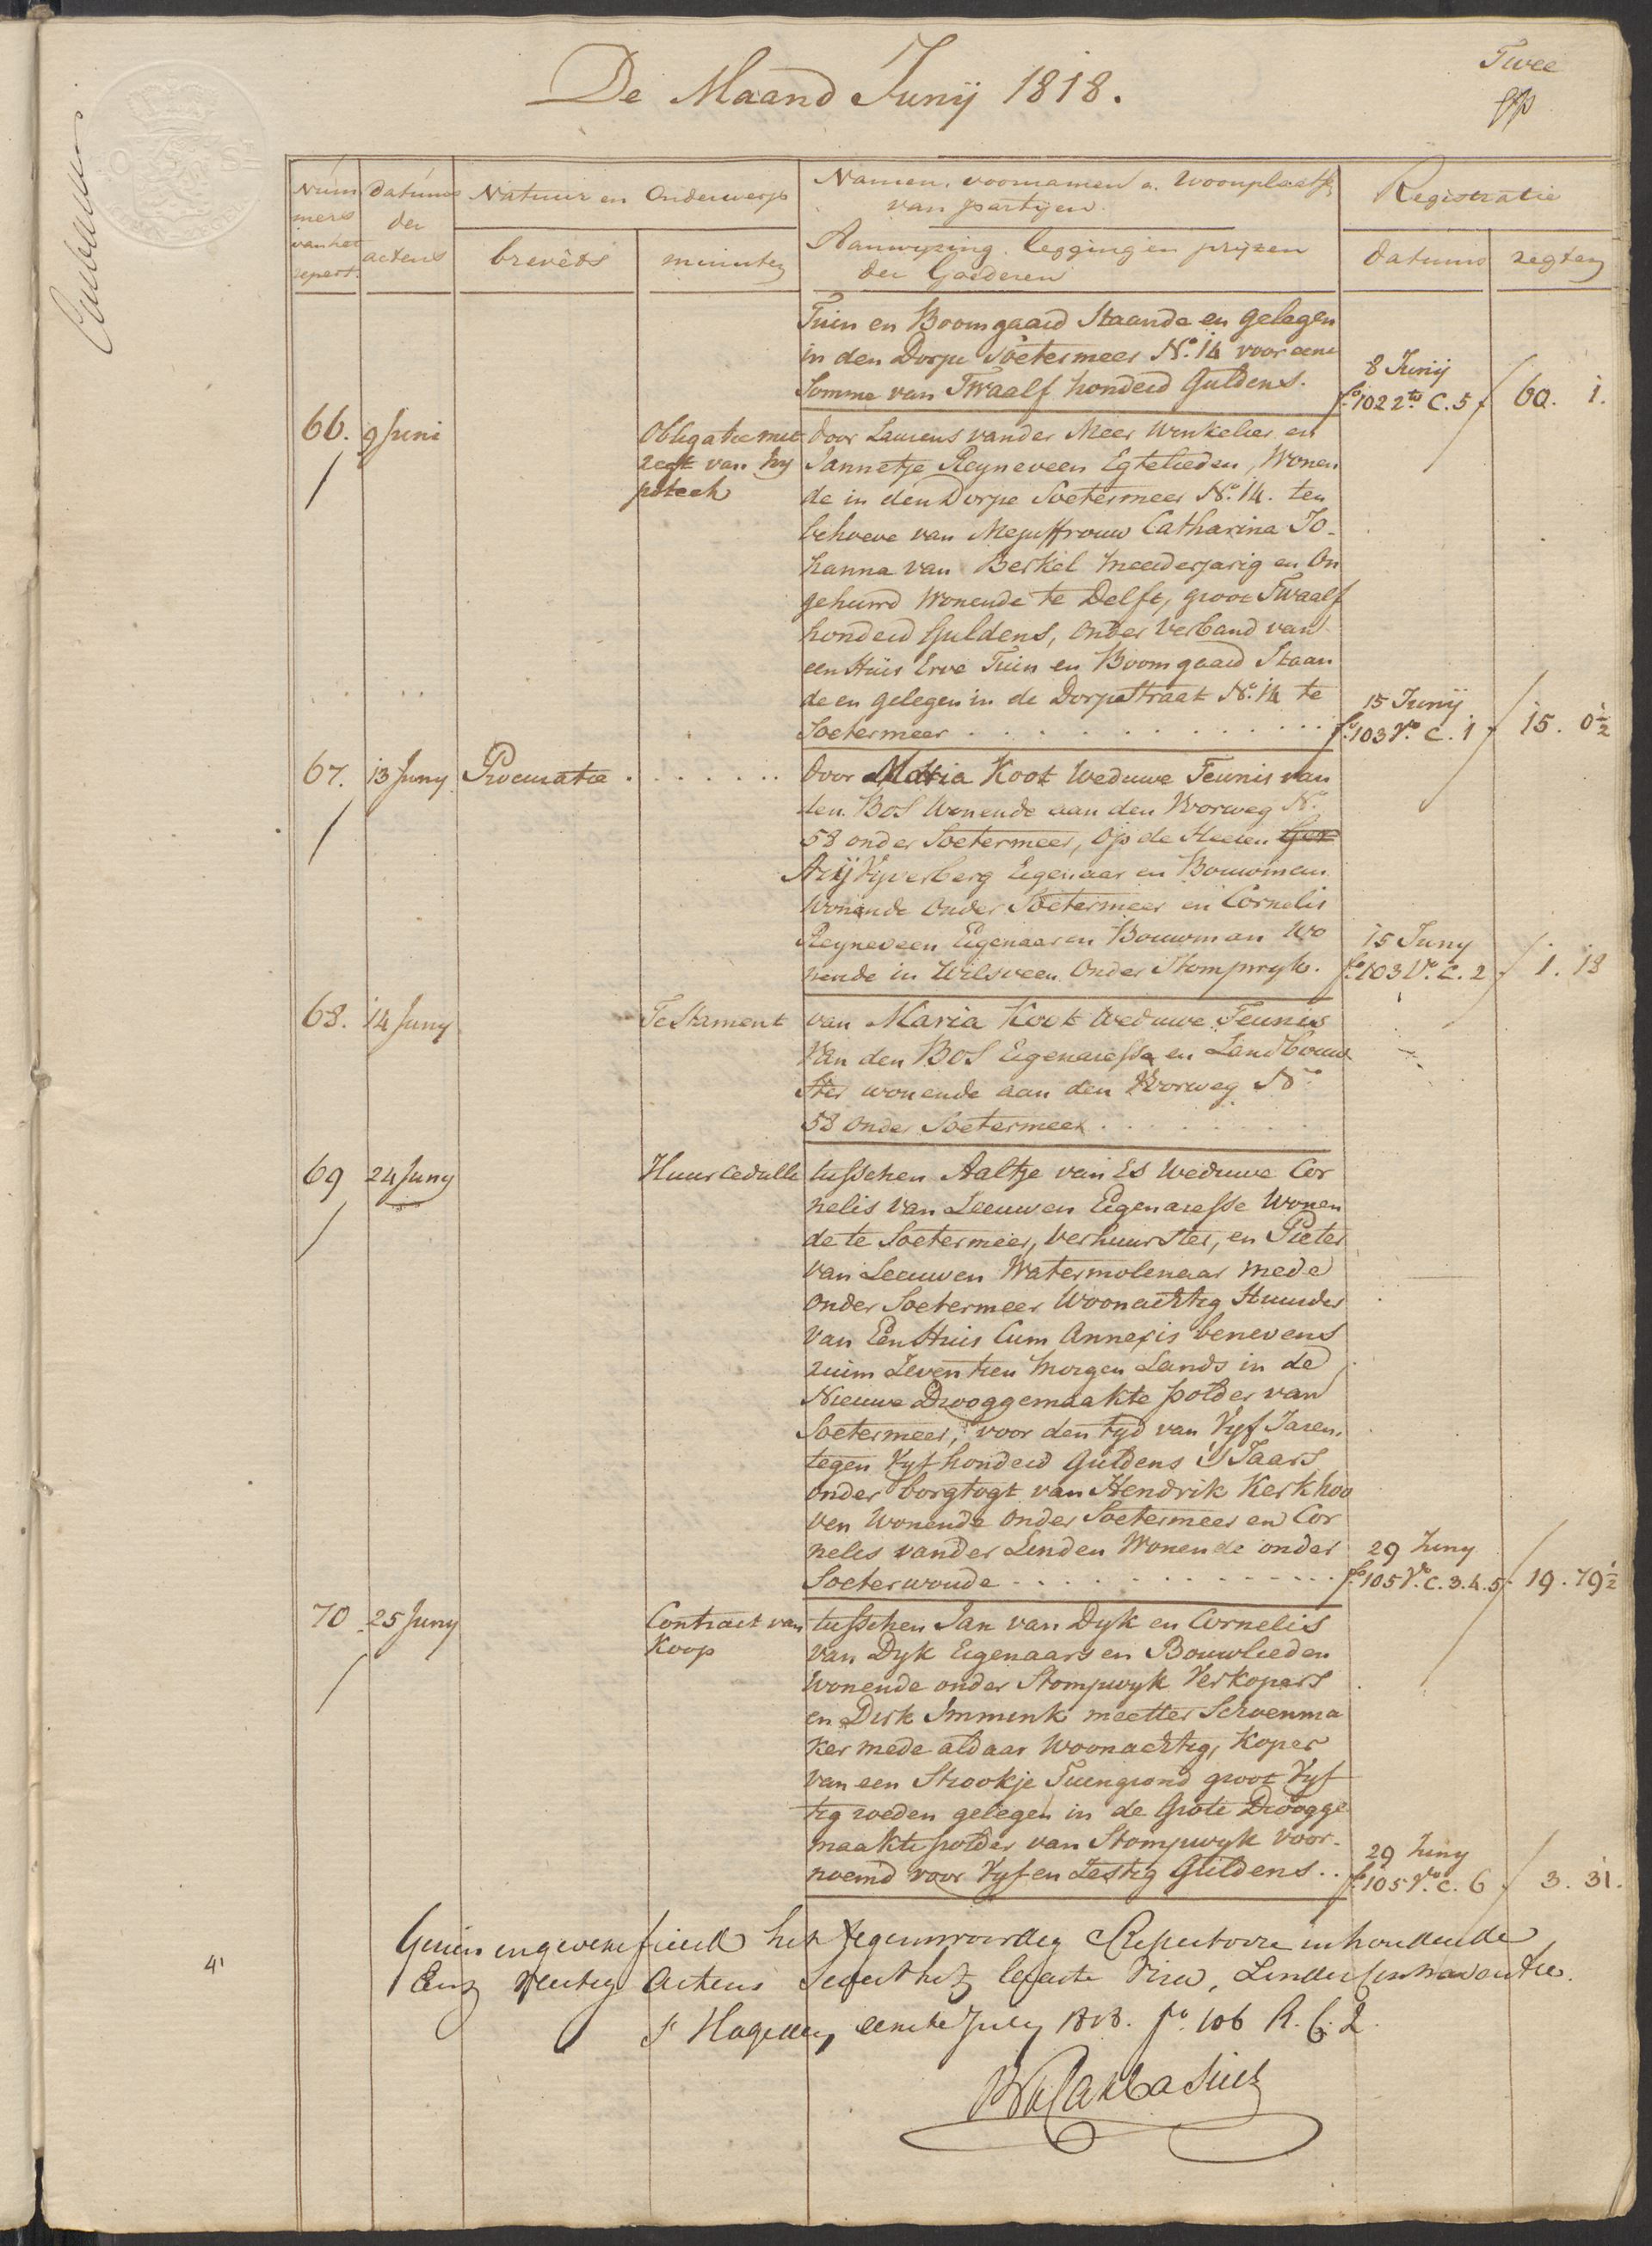 De Maand Junij 1818.
Twee
Num
mers
van het
repert.
datums
der
actens
Natuur en Onderwerp
brevêts
minuten
Namen, voornamen a. Woonplaats
van partijen.
Aanwyzing legging en pryzen
der Goederen
Registratie
datums
regten
Tuin en Boomgaard Staande en gelegen
in den Dorpe Soetermeer No. 14 voor eene
Somme van Twaalf honderd Guldens.
8 Junij
fo. 102 C. 5 f 60. 1.
66. 9 Juni
Obligatie met
regt van hy
poteek
door Laurens vander Meer Winkelier en
Jannetje Reyneveen Egtelieden, Wonen
de in den Dorpe Soetermeer No. 14. ten
behoeve van Mejuffrouw Catharina Jo-
hanna van Berkel meerderjarig en On
gehuwd Wonende te Delft, groot Twaalf
honderd Guldens, onder Verband van
een Huis Erve Tuin en Boomgaard Staan
de en gelegen in de Dorpstraat No. 14 te
Soetermeer
15 Junij
fo. 103 Vo. C. 1 f 15. 0½
67. 13 Juny Procuratie
door Maria Koot Weduwe Teunis van
den Bos Wonende aan den Vorweg No.
58 onder Soetermeer, op de Heeren Ger
Arij Vyverberg Eigenaar en Bouwman
Wonende onder Soetermeer en Cornelis
Reyneveen Eigenaar en Bouwman Wo
nende in Wilsveen Onder Stompwyk.
15 Juny
fo. 103 Vo. C. 2 f 1. 18
68. 14 Juny
Testament
van Maria Koot Weduwe Teunis
Van den Bos Eigenaresse en Landbouw
ster wonende aan den Vorweg No.
58 onder Soetermeer
69 24 Juny
Huurcedulle
tusschen Aaltje van Es Weduwe Cor
nelis van Leeuwen Eigenaresse Wonen
de te Soetermeer, verhuurster, en Pieter
van Leeuwen Watermolenaar mede
onder Soetermeer Woonachtig Huurder
van Een Huis Cum Annexis benevens
ruim Zeventien morgen Lands in de
Nieuwe Drooggemaakte polder van
Soetermeer, voor den tyd van Vyf Jaren,
tegen Vyf honderd Guldens 's Jaars
onder borgtogt van Hendrik Kerkhoo
ven Wonende onder Soetermeer en Cor
nelis vander Linden Wonende onder
Soeterwoude
29 Juny
fo. 105 Vo. C. 3.4.5. 19. 79½
70 25 Juny
Contract van
Koop
tusschen Jan van Dyk en Cornelis
van Dyk Eigenaars en Bouwlieden
wonende onder Stompwyk Verkopers
en Dirk Immink meester Schoenma
ker mede aldaar Woonachtig, Koper
van een Strookje Tuingrond groot Vyf
tig roeden gelegen in de Grote Droogge
maakte polder van Stompwyk voor-
noemd voor Vyf en Zestig Guldens..
29 Juny
fo. 105 Vo. C. 6 f 3. 31.
Gezien en geverifieerd het tegenwoordig Repertoire inhoudende
actens Sedert het laatste Visa, Zonder Contraventie.
41
S Hage den eerste July 1818. fo. 106 R. C. 2.